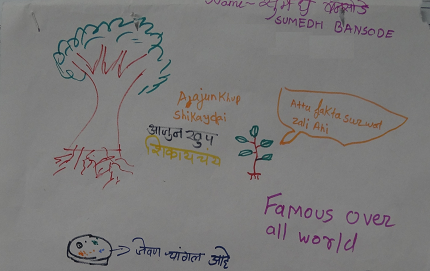 Name - सुमेध बनसोडे
SUMEDH BANSODE
Ajajun Khup
Shikaychai
आजुन खुप
शिकायचय
Atta fakta Suruvat
Zali Ahi
Famous over
all world
जेवण चांगल आहे